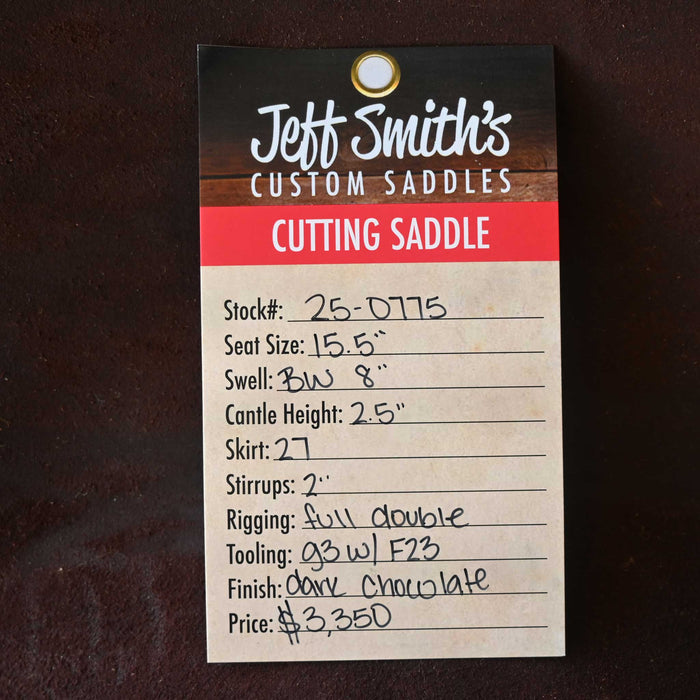 Jeff Smith's
CUSTOM SADDLES
CUTTING SADDLE
Stock#: 25-0775
Seat Size: 15.5"
Swell: BW 8"
Cantle Height: 2.5"
Skirt: 27
Stirrups: 2"
Rigging: full double
Tooling: g3 w/ F23
Finish: dark chocolate
Price: $3,350